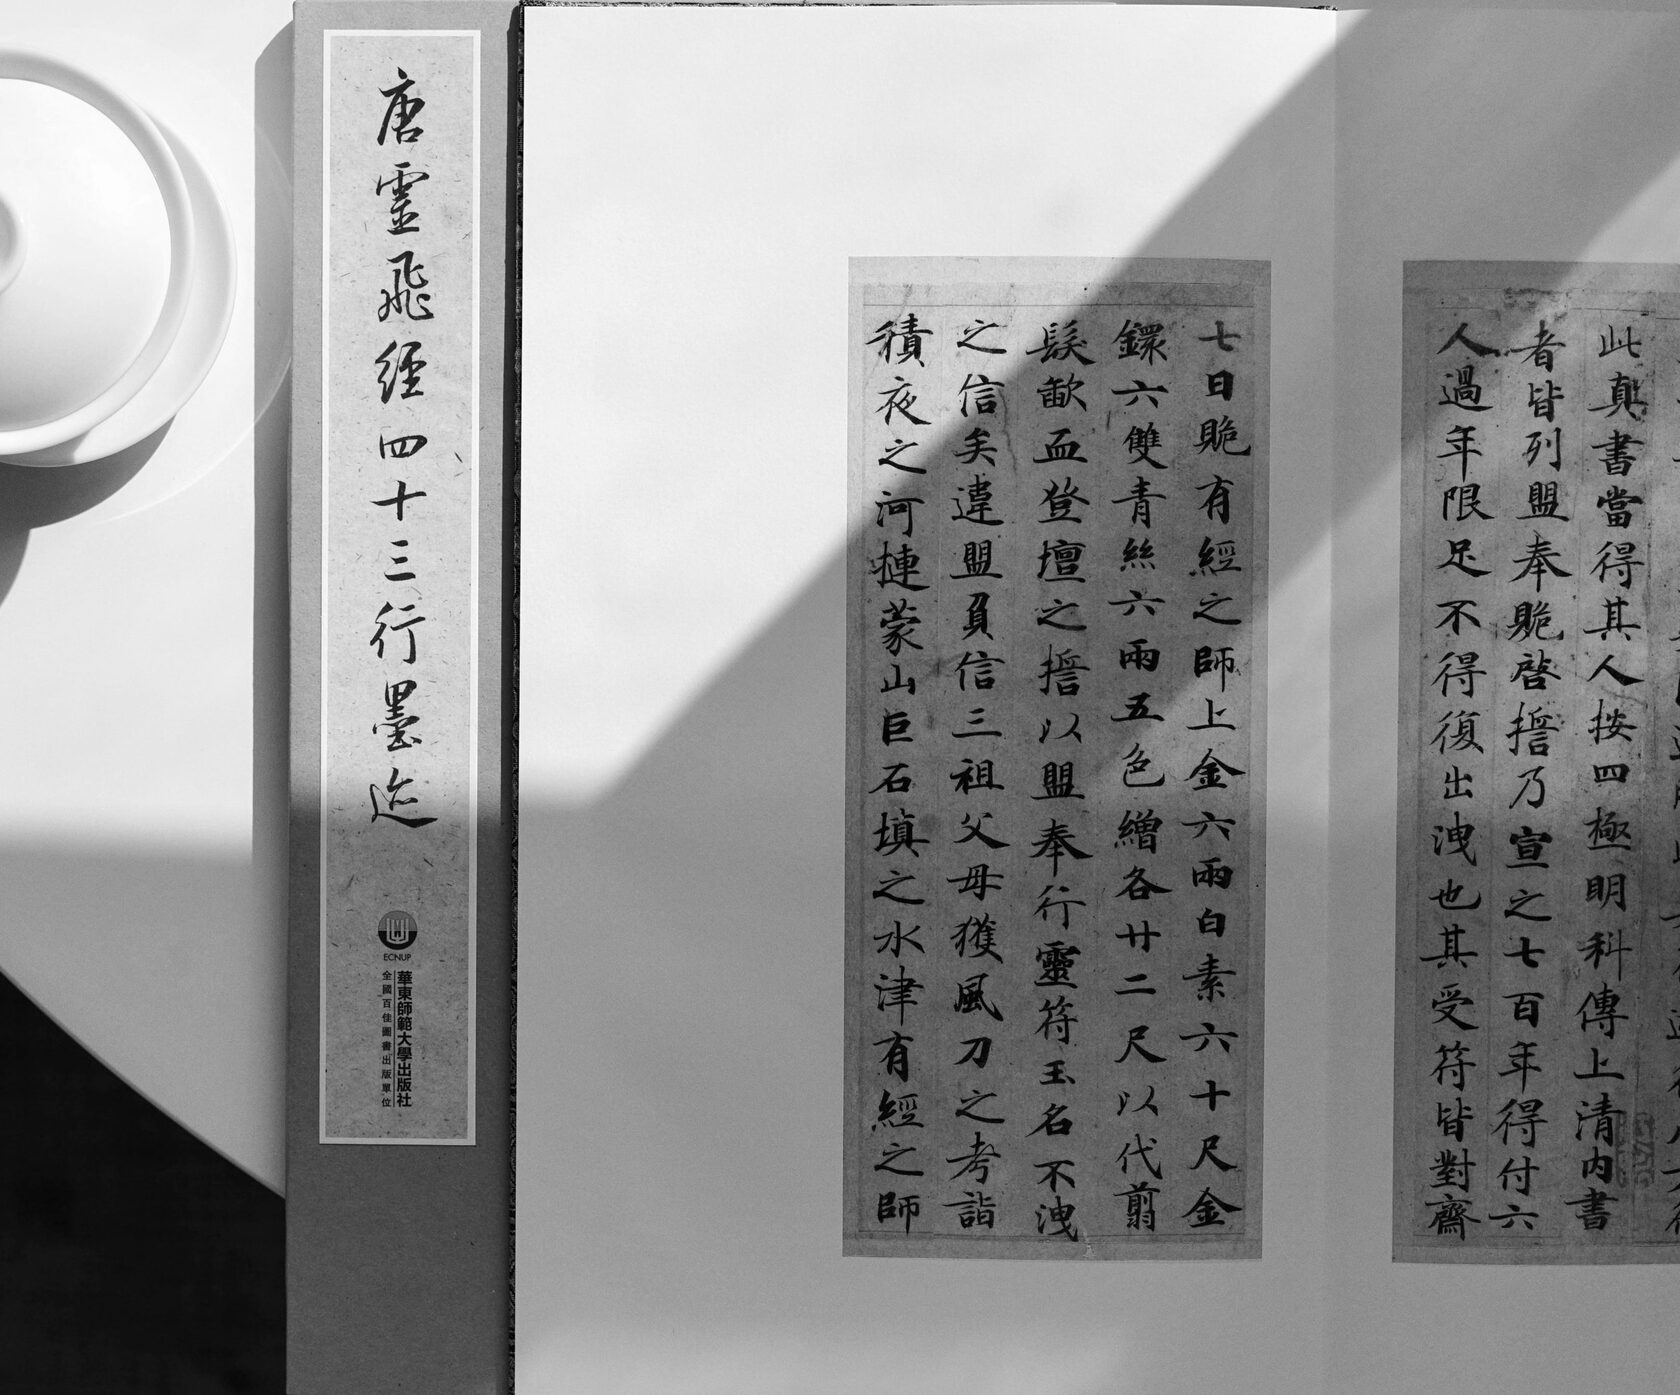 此真書當得其人按四極明科傳上清内書
者皆列盟奉䞈啓誓乃宣之七百年得付六
人過年限足不得復出洩也其受符皆對齋
七日䞈有經之師上金六兩白素六十尺金
鐶六雙青絲六兩五色繒各廿二尺以代翦
髮歃血登壇之誓以盟奉行靈符玉名不洩
之信矣違盟負信三祖父母獲風刀之考詣
積夜之河摙蒙山巨石填之水津有經之師
唐靈飛經四十三行墨迹
ECNUP
華東師範大學出版社
全國百佳圖書出版單位